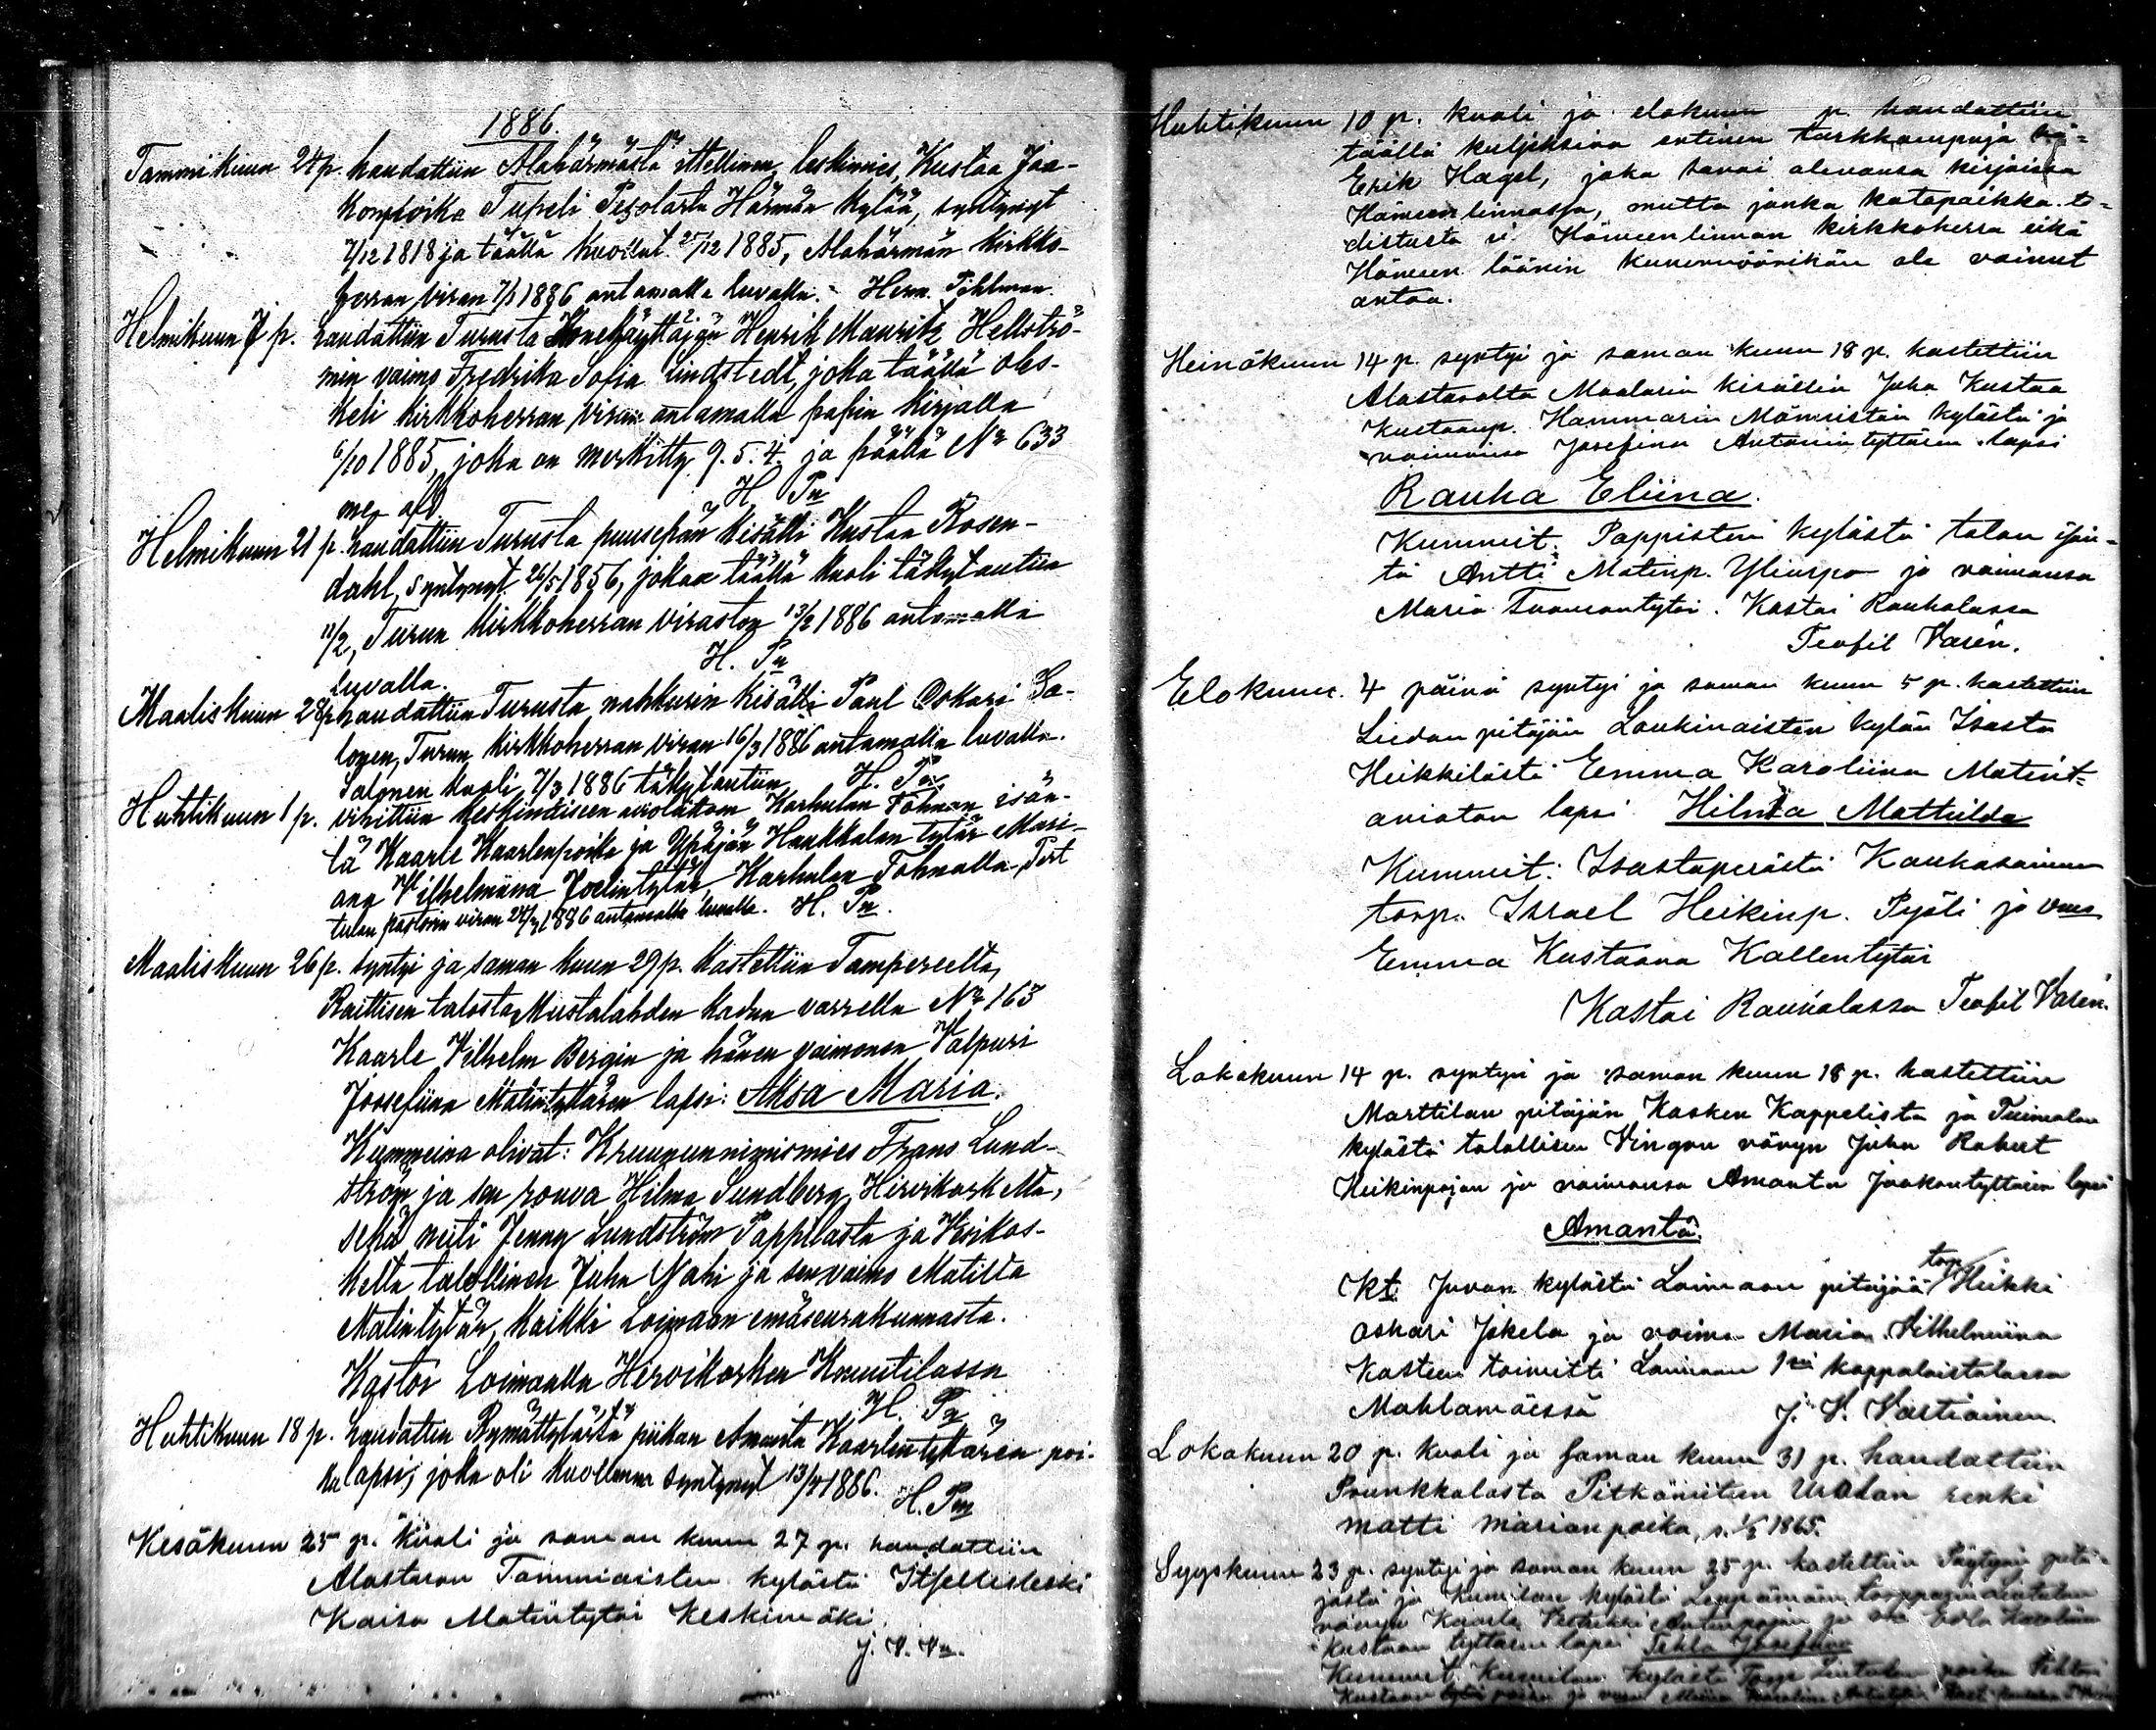 1886.
Tammikuun 24 p. haudattiin Alahärmästä ittellinen leskimies, Kustaa Jaa-
konpoika Tupeli Pesolasta Härmän kylää, syntynyt
7/12 1818 ja täällä kuollut 25/12 1885, Alahärmän kirkko-
herran viran 7/1 1886 antamalla luvalla. Herm. Påhlman.
Helmikuun 7 p. haudattiin Turusta Konekäyttäjän Henrik Mauritz Hellströ-
min vaimo Fredrika Sofia Lindstedt, joka täällä oles-
keli kirkkoherran viran antamalla papin kirjalla
6/10 1885, joka on merkitty 9. 5. 4. ja päällä No 633
H. Pn
Helmikuun 21 p. haudattiin Turusta puusepän kisälli Kustaa Rosen-
dahl, syntynyt 26/5 1856, joka täällä kuoli täkytautiin
11/2, Turun kirkkoherran viraston 13/2 1886 antamalla
luvalla. H. Pn
Maaliskuun 28 p. haudattiin Turusta nahkurin kisälli Paul Oskari Sa-
lonen, Turun kirkkoherran viran 16/3 1886 antamalla luvalla.
Salonen kuoli 7/3 1886 täkytautiin H. Pn
Huhtikuun 1 p. vihittiin keskinäiseen avioliittoon Karhulan Tohnan isän-
tä Kaarle Kaarlenpoika ja Ypäjän Haukkalan tytär Mari-
ana Vilhelmiina Joelintytär, Karhulan Tohnalla, Pert
tulan pastorin viran 24/3 1886 antamalla luvalla. H. Pn.
Maaliskuun 26 p. syntyi ja saman kuun 29 p. kastettiin Tampereelta,
Raittisen talosta Mustalahden kadun varrella No 163
Kaarle Vilhelm Bergin ja hänen vaimonsa Valpuri
Joosefiina Matintyttären lapsi: Aksa Maria.
Kummeina olivat: Kruununnimismies Frans Lund-
ström ja sen rouva Hilma Sundberg, Hirvikoskelta,
sekä neiti Jenny Lundström Pappilasta ja Vesikos-
kelta talollinen Juha Nahi ja sen vaimo Matilta
Matintytär, kaikki Loimaan emäseurakunnasta.
Kastoi Loimaalla Hirvikosken Kountilassa
H. Pn
Huhtikuun 18 p. haudattiin Rymättylästä piikan Amanta Kaarlentyttären poi-
kalapsi, joka oli kuolleena syntynyt 13/4 1886.
H. Pn
Kesäkuun 25 p. kuoli ja saman kuun 27 p. haudattiin
Alastaron Tammiaisten kylästä Itsellisleski
Kaisa Matintytär Keskimäki
J. V. Vn.
Huhtikuun 10 p. kuoli ja elokuun p. haudattiin
täällä kuljeksiva entinen turkkampuja
Erik Hagel, joka sanoi olevansa kirjoissa
Hämeenlinnassa, mutta jonka kotopaikka to-
distusta ei Hämeenlinnan kirkkoherra eikä
Hämeen läänin kuvernöörikän ole voinut
antaa.
Heinäkuun 14 p. syntyi ja saman kuun 18 p. kastettiin
Alastarolta Maalarin kisällin Juha Kustaa
Kustaanp. Hammarin Männistön kylästä ja
vaimonsa Josefina Antonintyttären lapsi
Rauha Eliina.
Kummit: Pappisten kylästä talon isän-
tä Antti Matinp. Yliuspo ja vaimonsa
Maria Tuomontytär. Kastoi Rauhalassa
Teofil Varén.
Elokuun. 4 päivä syntyi ja saman kuun 5 p. kastettiin
Liedon pitäjän Loukinaisten kylän Isosta
Heikkilästä Emma Karoliina Matint-
avioton lapsi Hilma Mathilda
Kummit: Isostaperästä Kaukasainen
torp. Israel Heikinp. Pyöli ja vmo
Emma Kustaava Kallentytär
Kastoi Rauhalassa Teofil Varén.
Lokakuun 14 p. syntyi ja saman kuun 18 p. kastettiin
Marttilan pitäjän Kosken Kappelista ja Tuimalan
kylästä talollisen Vingon vävyn Juha Robert
Heikinpojan ja vaimonsa Amanta Jaakontyttären lapsi
Amanta.
Kt. Juvan kylästä Loimaan pitäjää torp. Heikki
Oskari Jokela ja vaimo Maria Vilhelmiina
Kasteen toimitti Loimaan 1sen kappalaistalossa
Mahlamäessä J. V. Vartiainen.
Lokakuun 20 p. kuoli ja saman kuun 31 p. haudattiin
Prunkkalasta Pitkäniitun Uratan renki
Matti Marianpoika, s. 1/2 1865.
Syyskuun 23 p. syntyi ja saman kuun 25 p. kastettiin Pöytyän pitä-
jästä ja Kumilan kylästä Leppämäen torppa
vävyn Kaarle Antinpojan ja vmo Eva Karoliina
Kustaan tyttären lapsi Tekla Josefiina
Kummit: Kumilan kylästä Torp. poika Vihtori